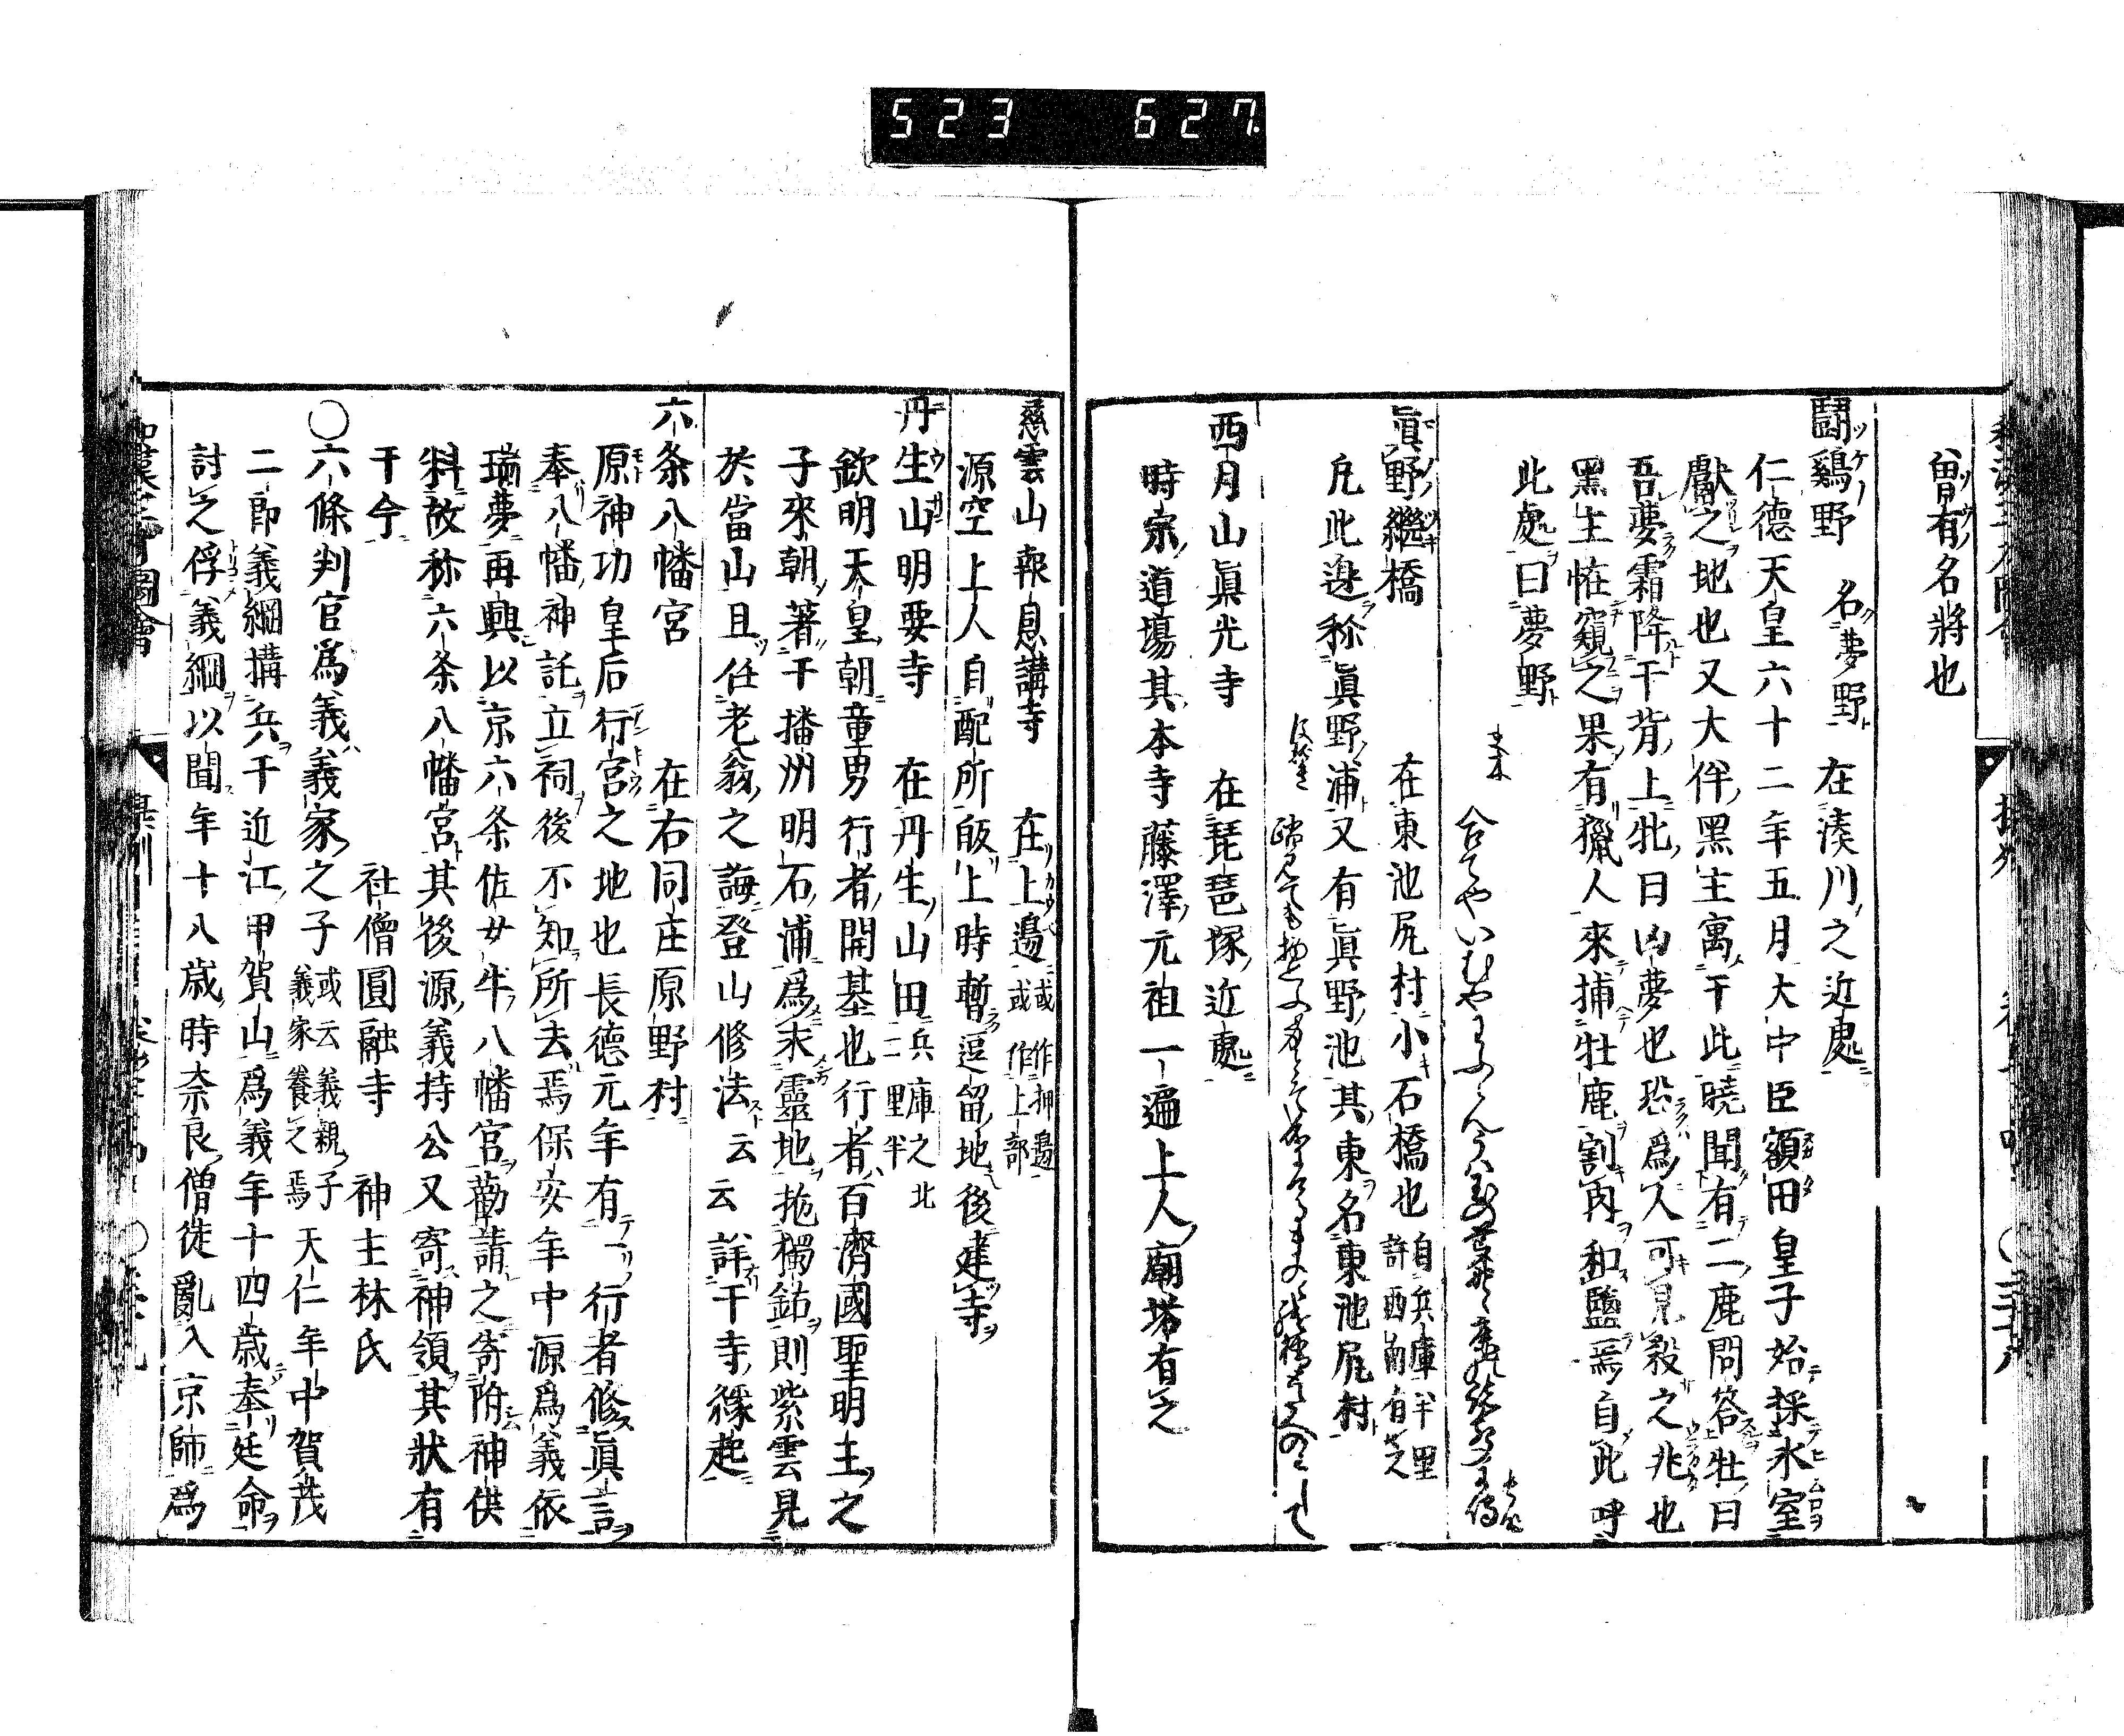 523 627
曾有名將也
鬪鷄野 名夢野 在湊川之近處
仁德天皇六十二年五月大中臣額田皇子始採氷室
獻之地也又大伴黑主寓于此曉聞有二鹿問答牡曰
吾夢霜降于背上牝曰凶夢也恐爲人可見殺之兆也
黑主恠窺之果有獵人來捕牡鹿割肉和鹽焉自此呼
此處曰夢野
眞野繼橋 在東池尻村小石橋也 自兵庫半里許西南有之
凡此邊称眞野浦又有眞野池其東名東池尻村
西月山眞光寺 在琵琶塚近處
時宗道塲其本寺藤澤元祖一遍上人廟塔有之
慈雲山報恩講寺 在上邊 或作押邊或作上部
源空上人自配所皈上時暫逗留地後建寺
丹生山明要寺 在丹生山田 兵庫之北二里半
欽明天皇朝童男行者開基也行者百濟國聖明主之
子來朝著于播州明石浦爲末靈地拖獨鈷則紫雲見
於當山且任老翁之誨登山修法云云詳于寺緣起
六条八幡宮 在右同庄原野村
原神功皇后行宮之地也長德元年有一行者修眞言
奉八幡神託立祠後不知所去焉保安年中源爲義依
瑞夢再興以京六条佐女牛八幡宮勸請之寄附神供
料故称六条八幡宮其後源義持公又寄神領其狀有
于今 社僧圓融寺 神主林氏
〇六條判官爲義義家之子 或云義親子義家養之焉 天仁年中賀茂
二郎義綱搆兵于近江甲賀山爲義年十四歲奉廷命
討之俘義綱以聞年十八歲時奈良僧徒亂入京師爲